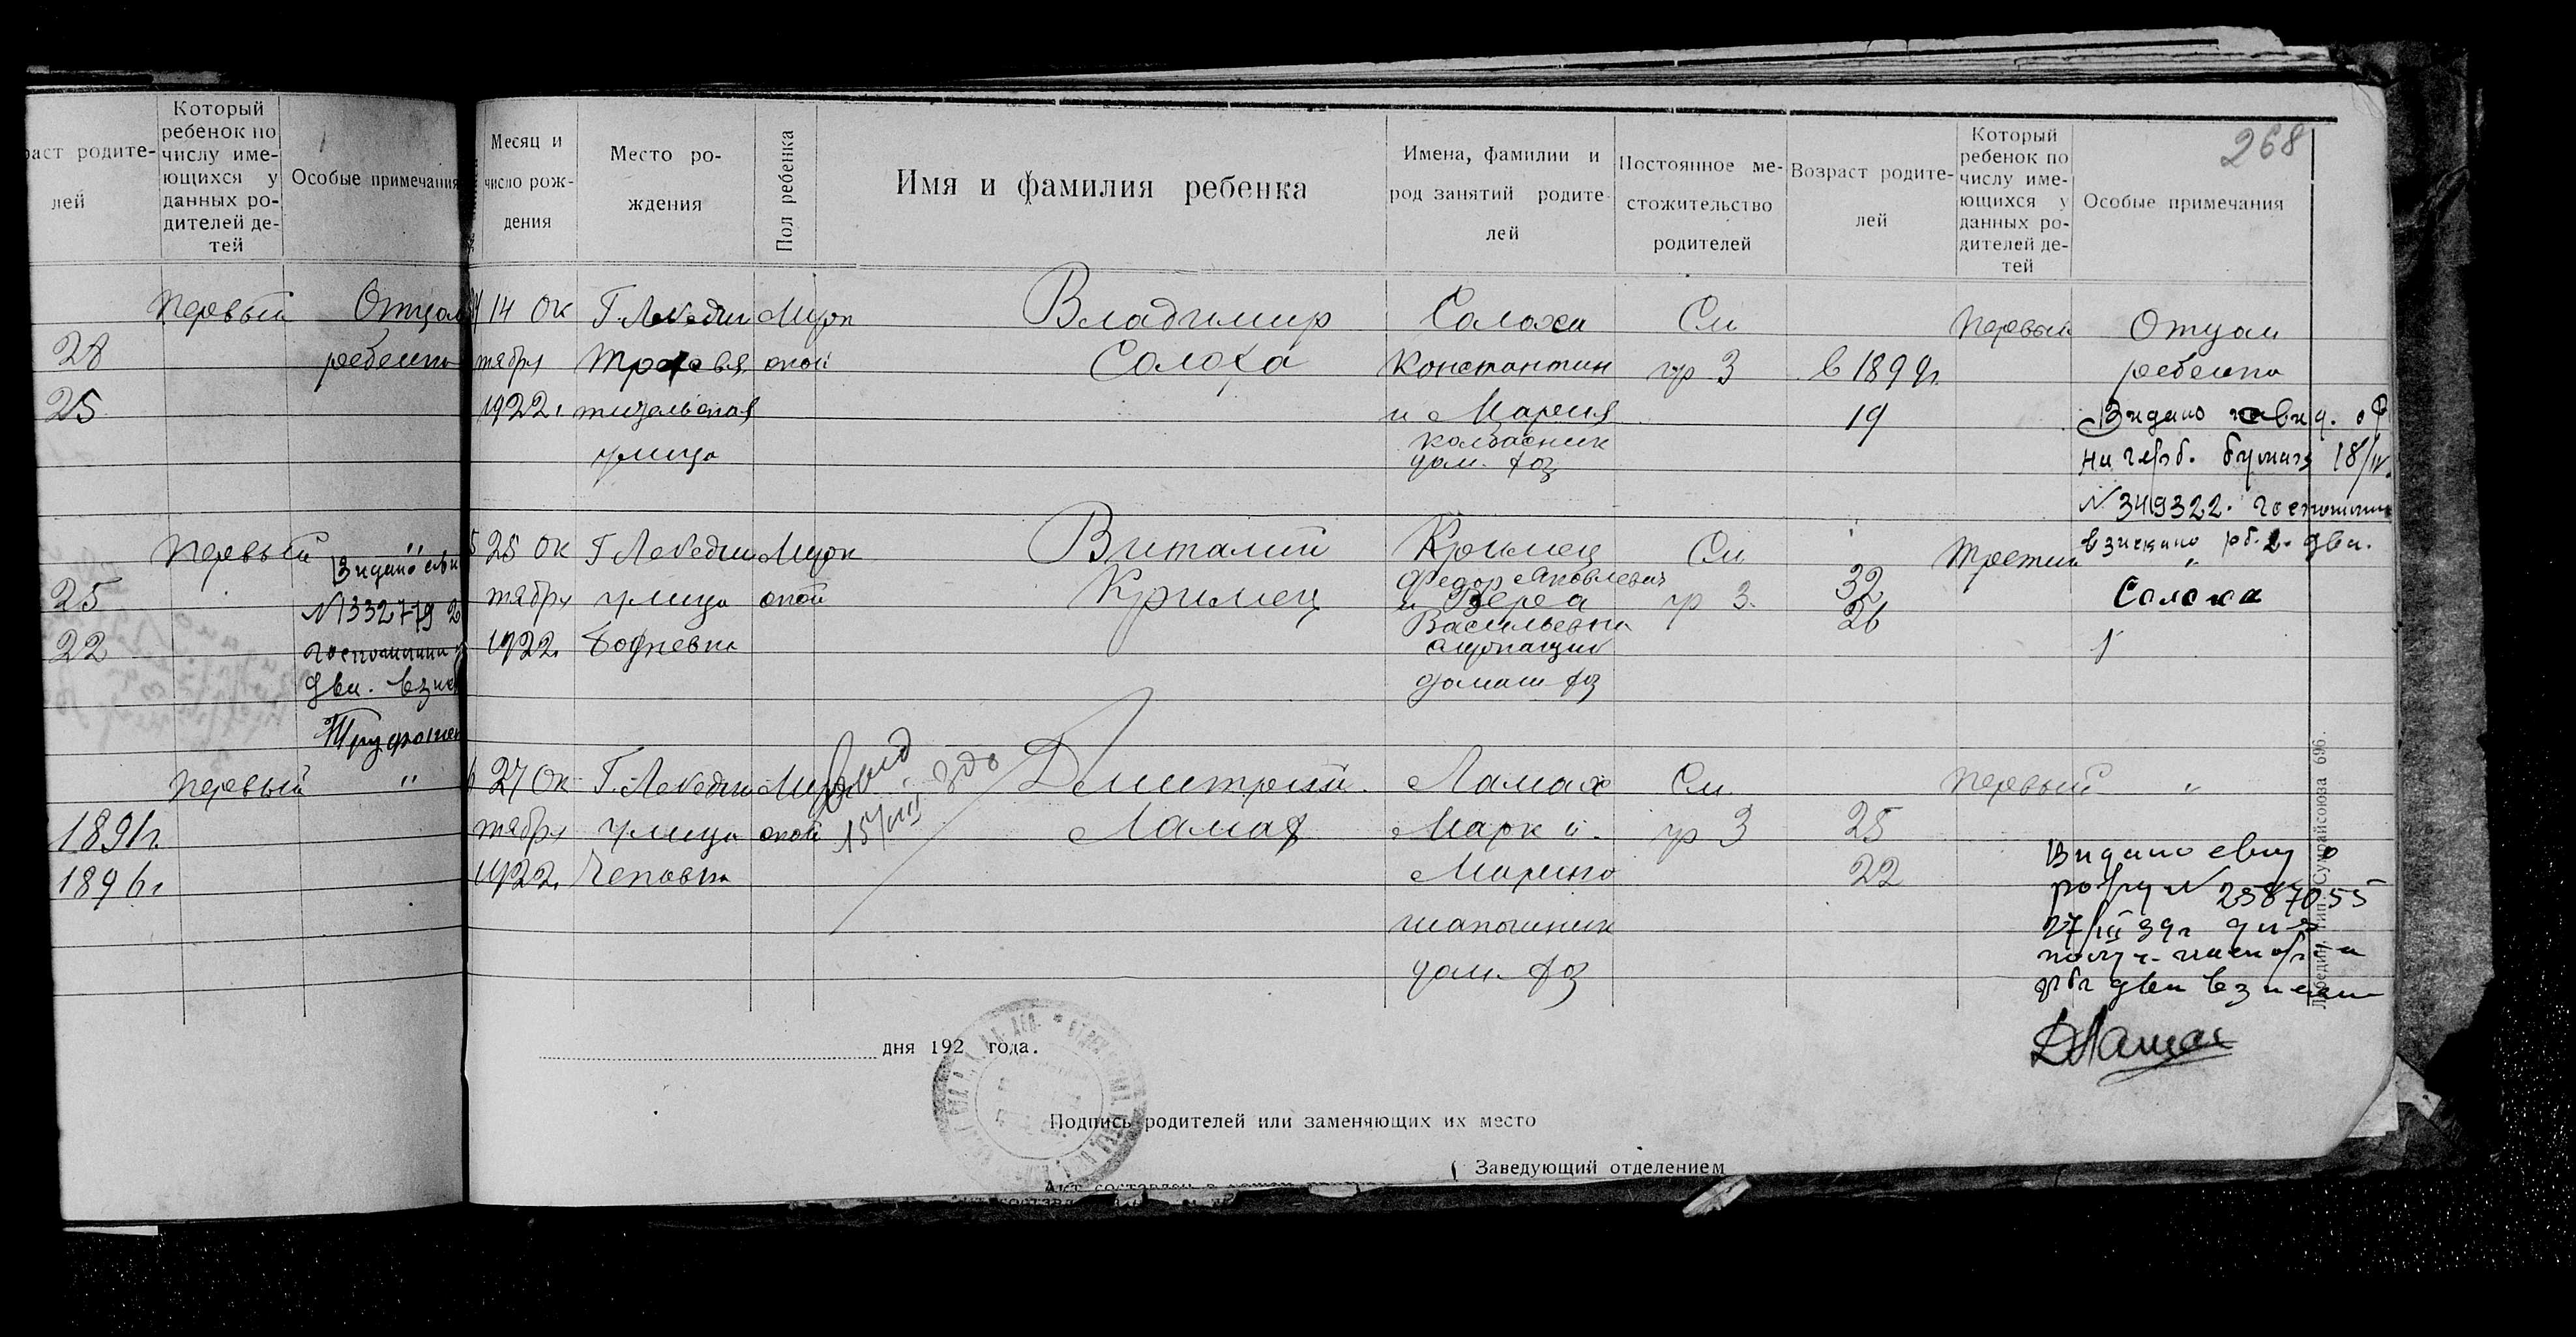 268
раст родите-
лей
Который
ребенок по
числу име-
ющихся у
данных ро-
дителей де-
тей
Особые примечания
Первый
Отцом
28
ребенка
25
Первый
"
Видано
25
N 332779
22
госпошлина
два. взис
Первый
"
1891г.
1896г
Месяц и
число рож-
дения
Место ро-
ждения
Пол ребенка
Имя и фамилия ребенка
Имена, фамилии и
род занятий родите-
лей
Постоянное ме-
стожительство
родителей
Возраст родите-
лей
Который
ребенок по
числу име-
ющихся у
данных ро-
дителей де-
тей
Особые примечания
14 Ок
тября
1922.
Г. Лебедин
улица
Мужс
ской
Владимир
Солоха
Солоха
Константин
и Мария
колбасник
дом. хоз
См
гр 3
в 1899г.
19
Первый
Отцом
ребенка
Видано
на герб. бумаги 18/IV.
N 349322. госпошлина
взискано рб. 2. два.
Солоха
25 Ок
тября
1922.
Г Лебедин
улица
Мужс
ской
Виталий
Кримец
Кримец
Федор Яковлевич
и Вера
Васильевна
домаш хоз
См
гр 3.
32
26
Третий
"
27 Ок
тября
1922.
Г. Лебедин
улица
Мужс
ской
15/VIII
Дмитрий.
Ламах
Ламах
Марк и.
Марина
шапошник
дом. хоз
См
гр 3
25
22
Первый
"
Видано свид о
рожд N 2587055
27/III 39г для
получ. паспорта
рбл два взискан
ДЛамах
дня 192 года.
Подпись родителей или заменяющих их место
Заведующий отделением
Лебедин, тип. Сумрайсоюза 696.